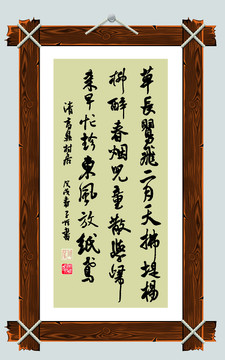 草長鶯飛二月天拂堤楊
拂醉春烟兒童散學歸
來早忙趁東風放紙鳶
清高鼎村居